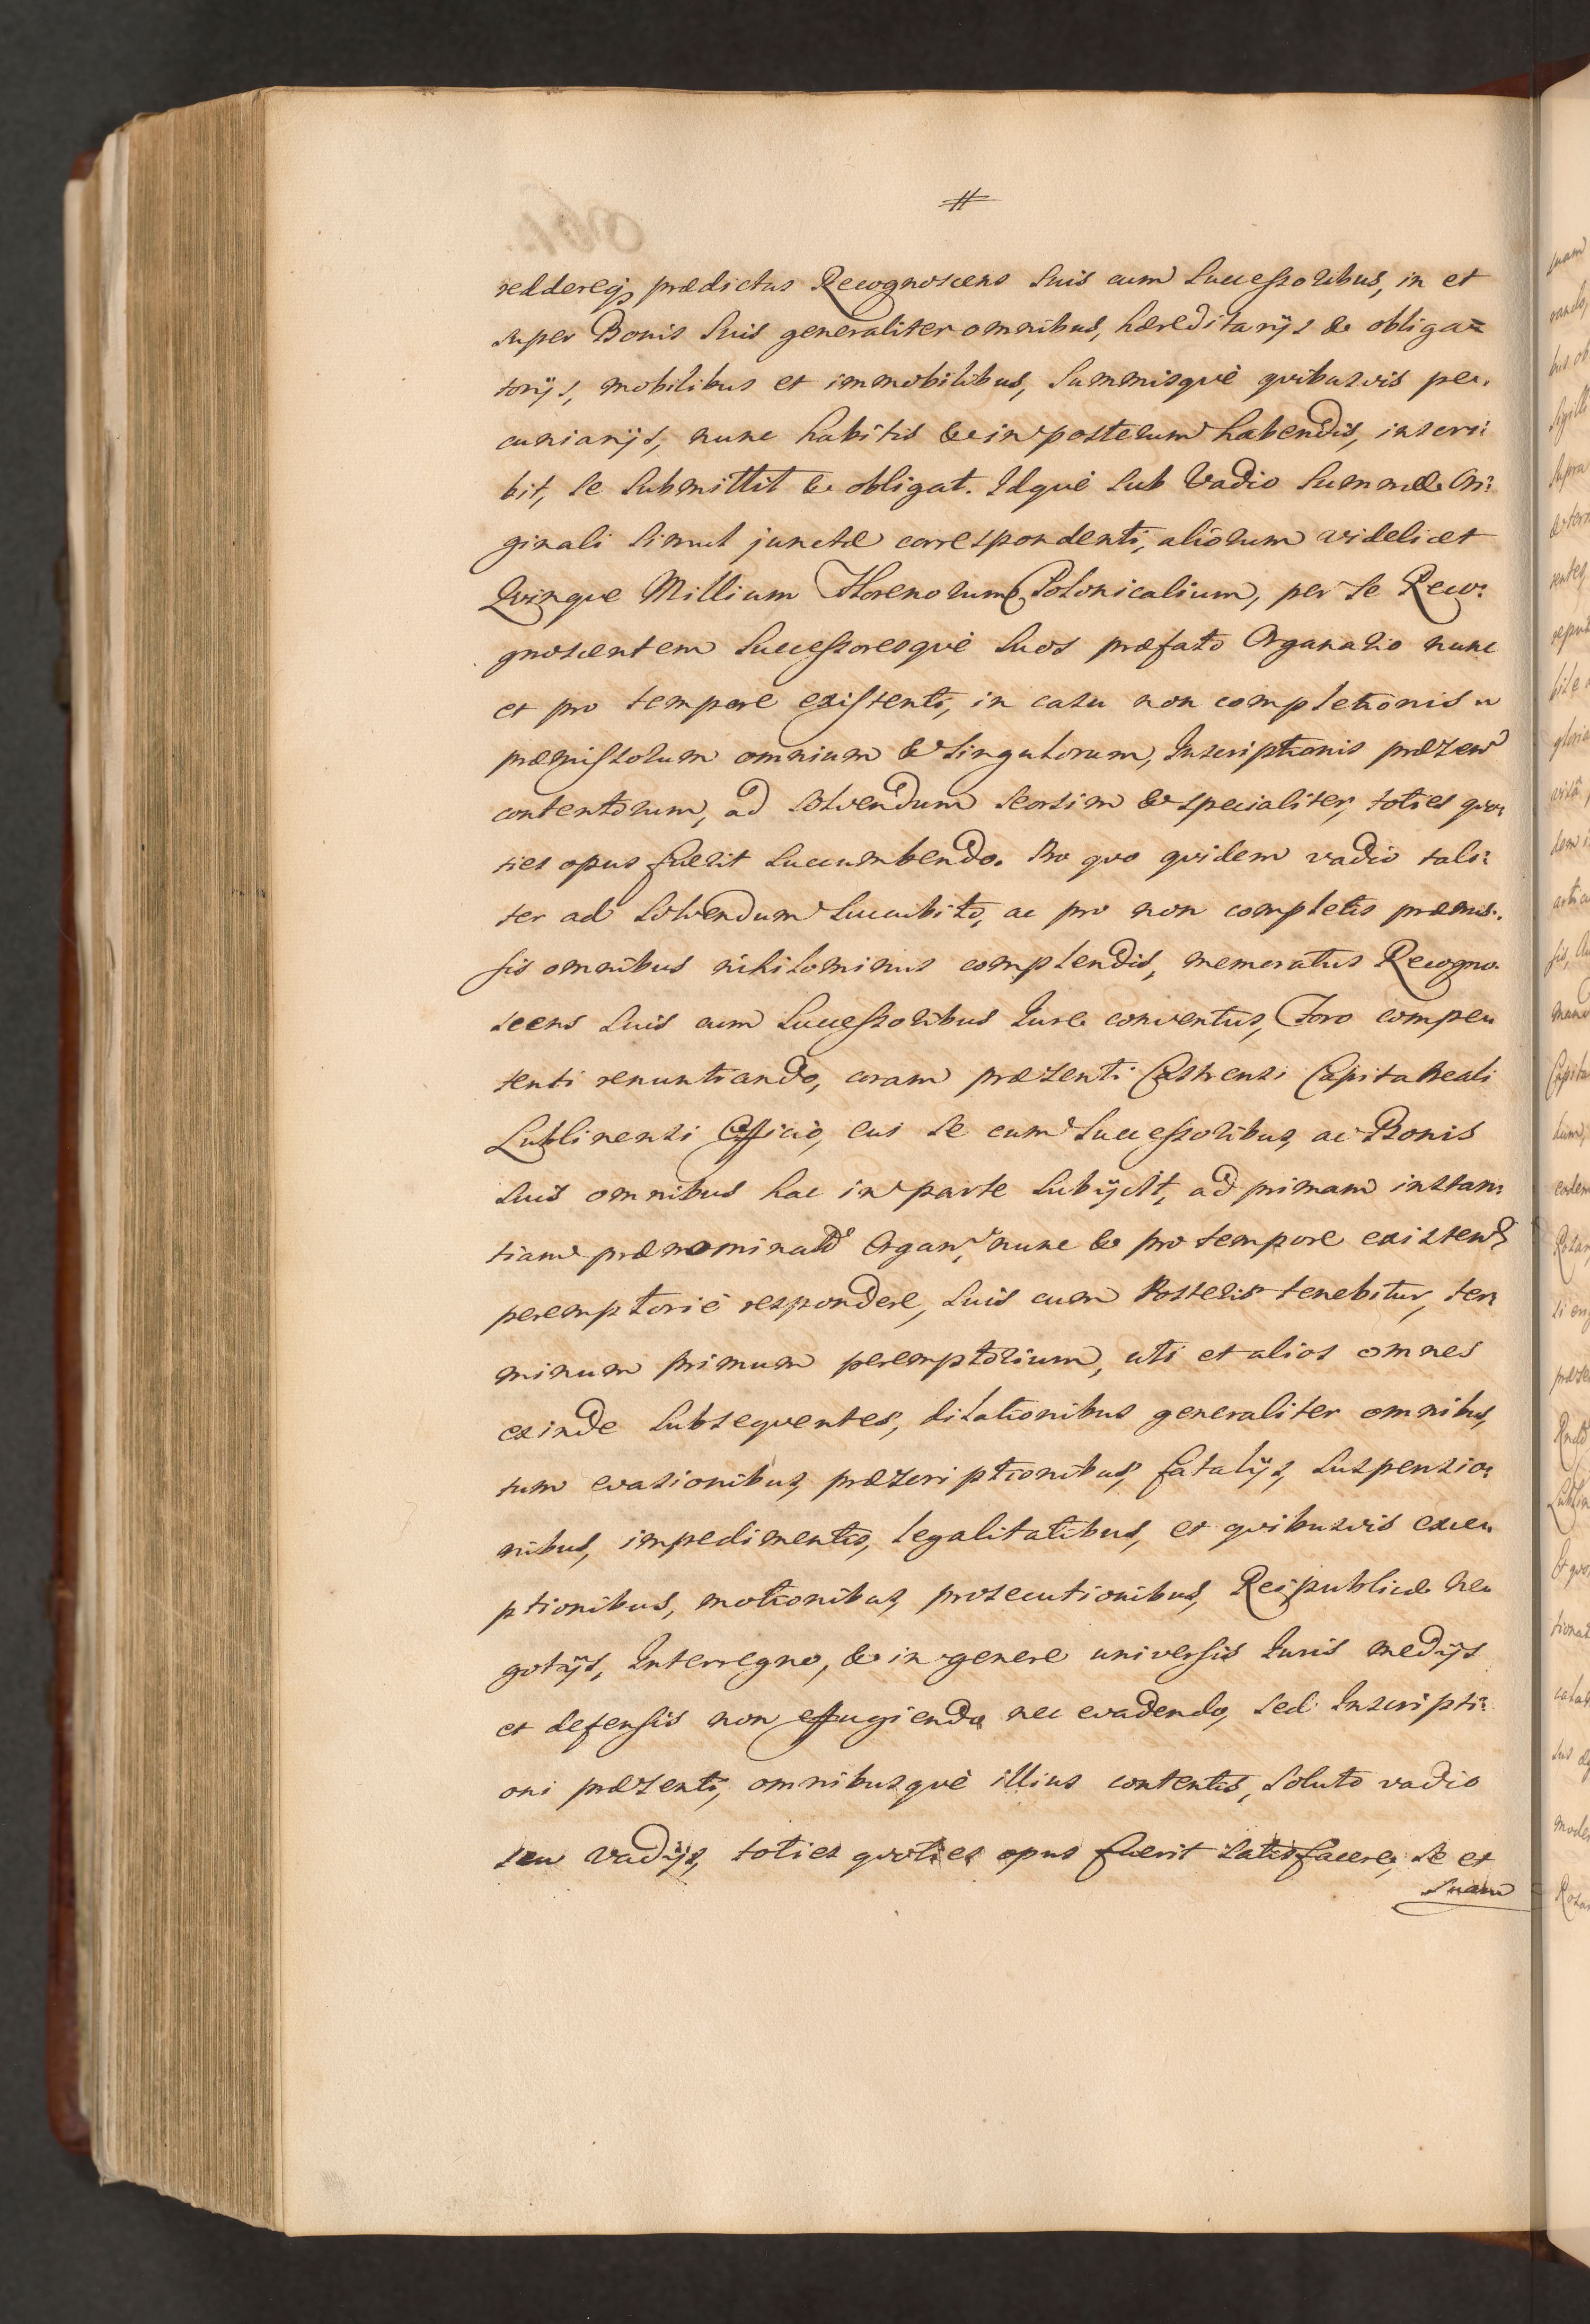 #
reddereq₃ prædictus Recognoscens Suis cum Successoribus, in et
super Bonis Suis generaliter omnibus, hæreditarijs & obliga=
torijs, mobilibus et immobilibus, Summisquè quibusvis pec:
cuniarijs, nunc habitis & in posterum habendis, inscri:
bit, se Submittit & obligat. Idquè Sub Vadio Summæ Ori:
ginali Simul junctæ correspondenti, aliorum videlicet
Quinque Millium Florenorum Polonicalium, per Se Reco:
gnoscentem Successoresquè Suos præfato Organario nunc
et pro tempore existenti, in casu non completionis
præmissorum omnium & Singulorum, Inscriptionis præsen
contentorum, ad solvendum seorsim & specialiter, toties quo:
ties opus fuerit Succumbendo. Pro quo quidem vadio tali:
ter ad Solvendum Succubito, ac pro non completis præmis:
sis omnibus nihilominus complendis, memoratus Recogno:
scens Suis cum Successoribus Jure conventus, Foro compe
tenti renuntiando, coram præsenti Castrensi Capitaneali
Lublinensi Officio, cui Se cum Successoribus, ac Bonis
Suis omnibus hac in parte Subijcit, ad primam instan:
tiam prænominati Organ: nunc & pro tempore existen
peremptoriè respondere, Suis cum Posteris tenebitur, ter:
minum primum peremptorium, uti et alios omnes
exinde Subsequentes, dilationibus generaliter omnibus,
tum evasionibus, præscriptionibus, fatalijs, Suspensio:
nibus, impedimentis, legalitatibus, et quibusvis exce
ptionibus, motionibus, prosecutionibus, Reipublicæ ne
gotijs, Interregno, & in genere universis Juris medijs
et defensis non effugiendo nec evadendo, Sed Inscripti:
oni præsenti, omnibusquè illius contentis, Soluto vadio
seu vadijs, toties quoties opus fuerit satisfacere, Se et
Suam